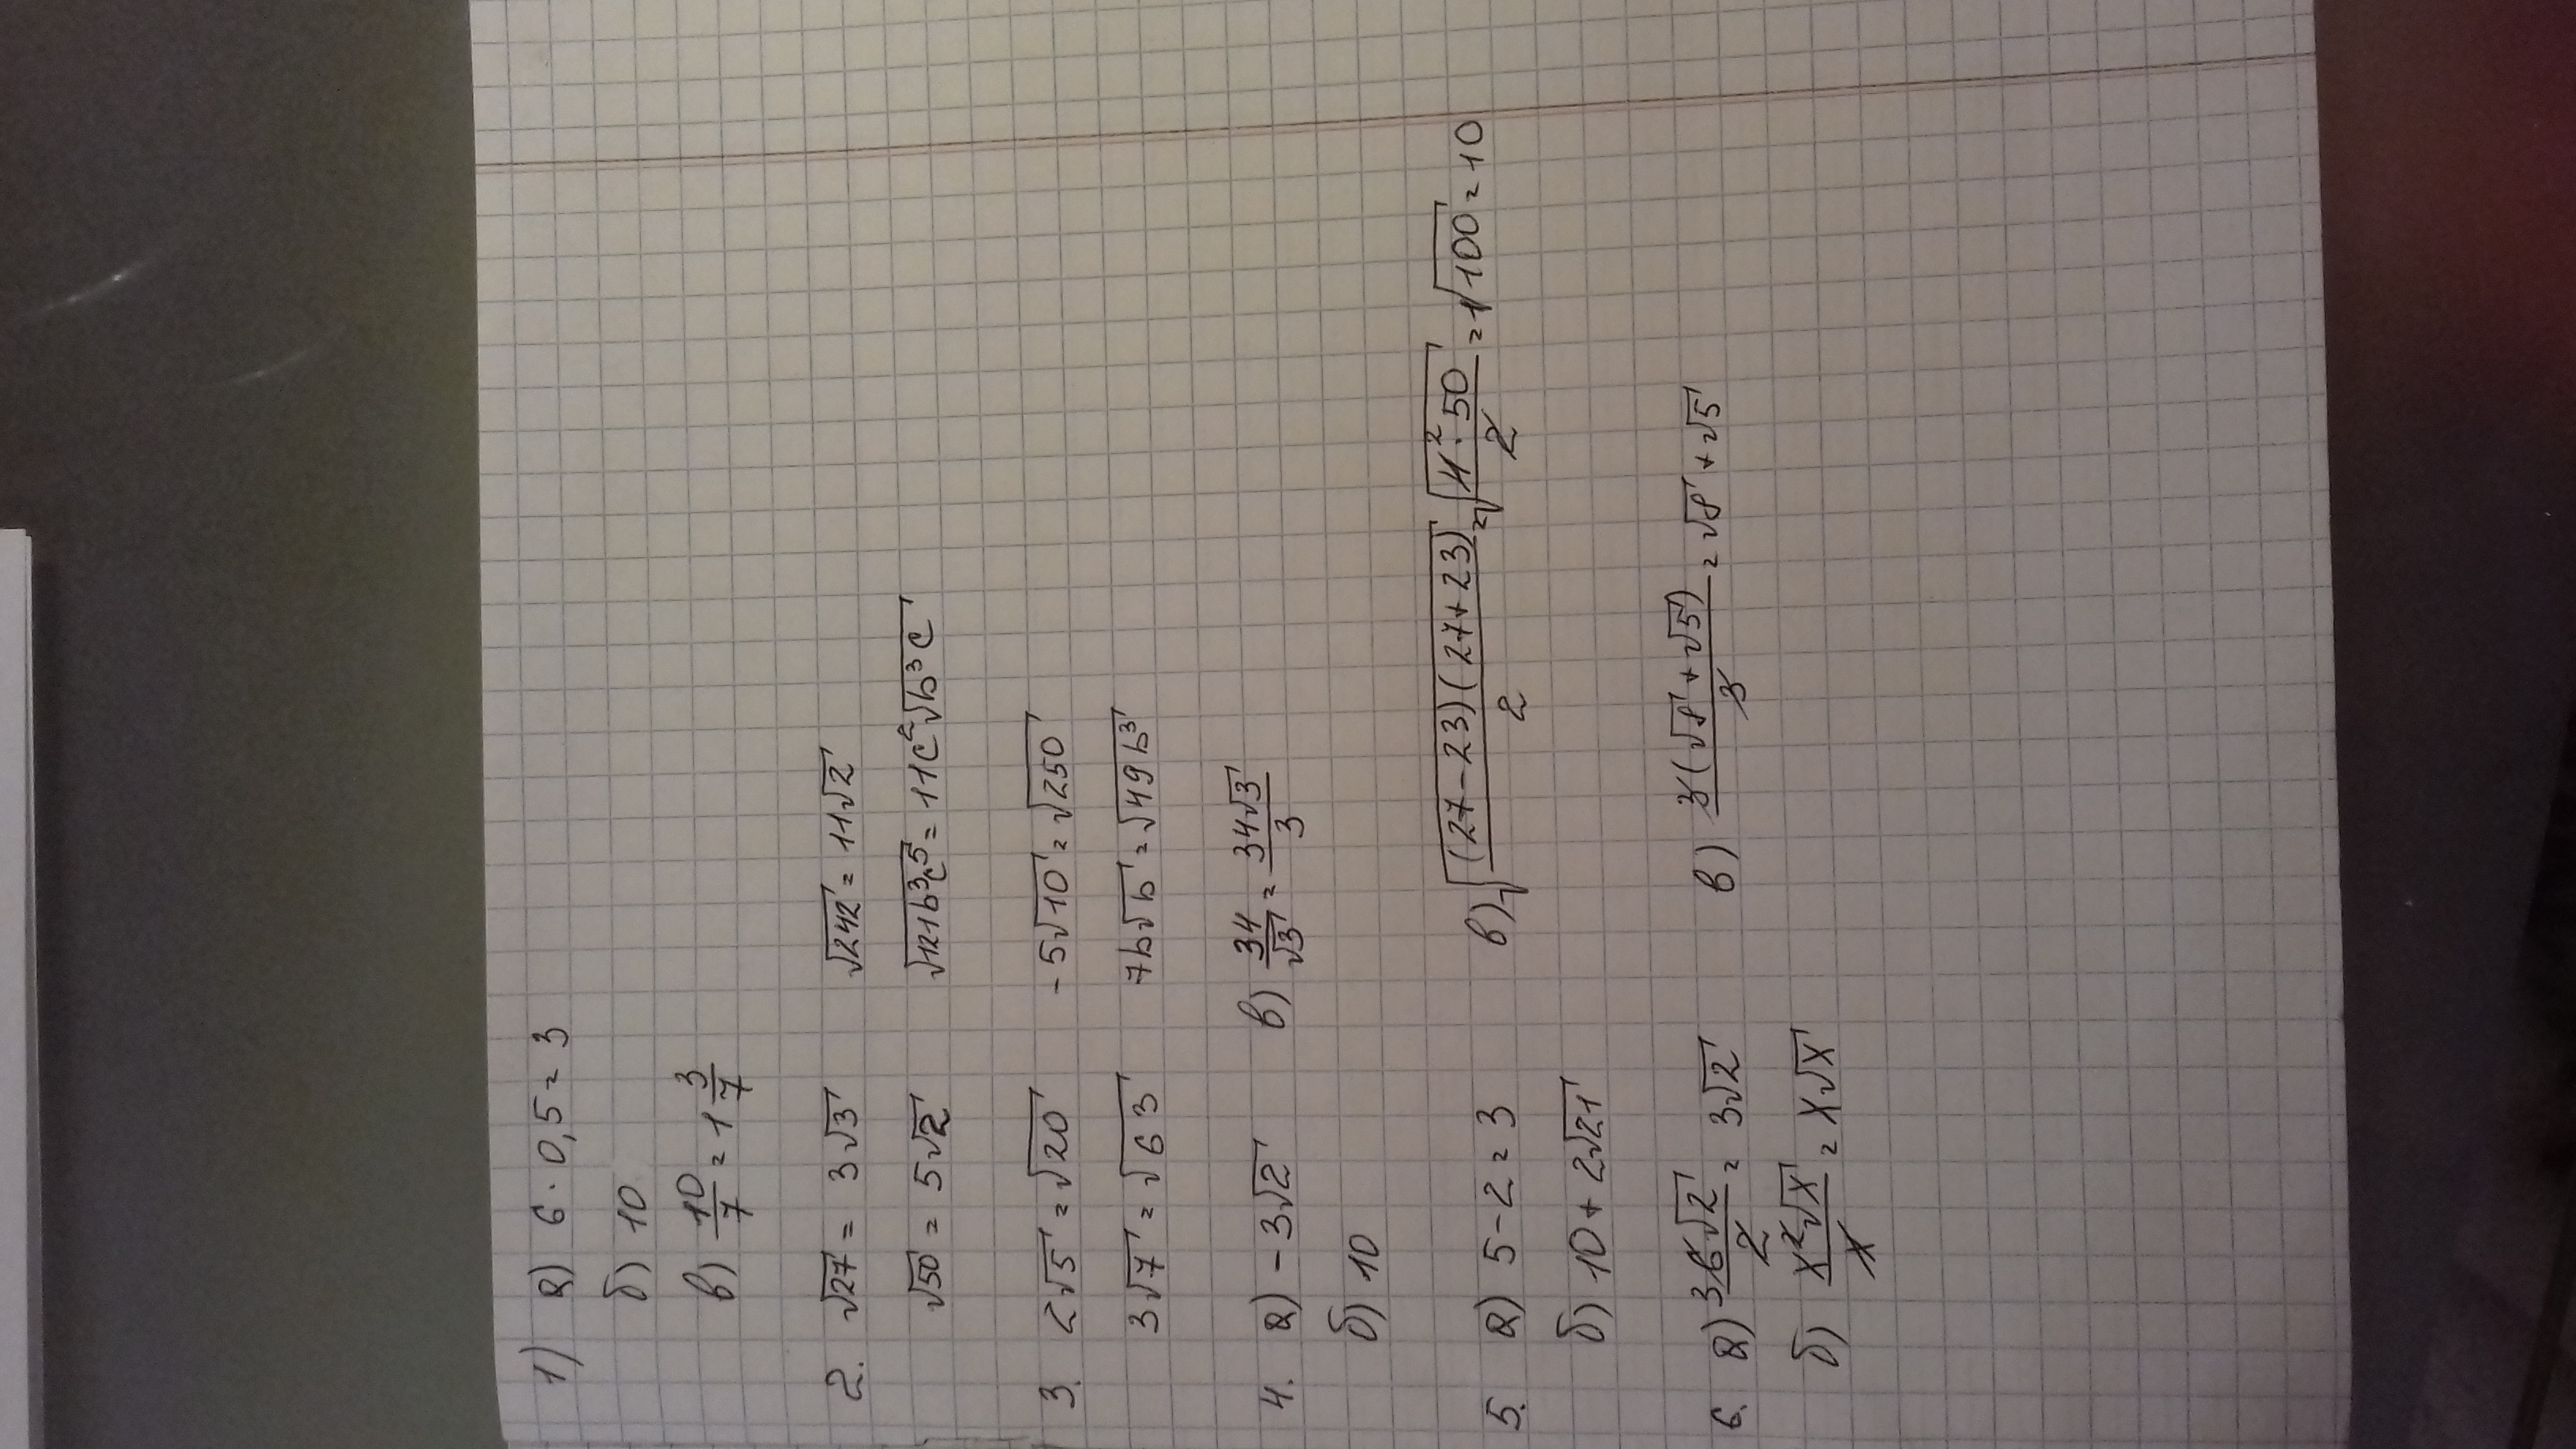 1) а) 6 · 0,5 = 3
б) 10
в) 10/7 = 1 3/7
2. √27 = 3√3 √242 = 11√2
√50 = 5√2 √121b³c⁵ = 11c²√b³c
3. 2√5 = √20 -5√10 = √250
3√7 = √63 7b√b = √49b³
4. а) -3√2 в) 34/√3 = 34√3/3
б) 10
5. а) 5-2=3 в) √((27-23)(27+23)/2) = √(4²·50/2) = √100 = 10
б) 10+2√21
6. а) 3 6√2/2 = 3√2 в) 3(√8+√5)/3 = √8+√5
б) x²√x/x = x√x